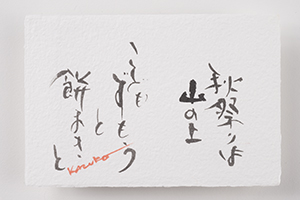 秋祭りは
山の上
こどもずもう
と
餅まきと
Kazuko